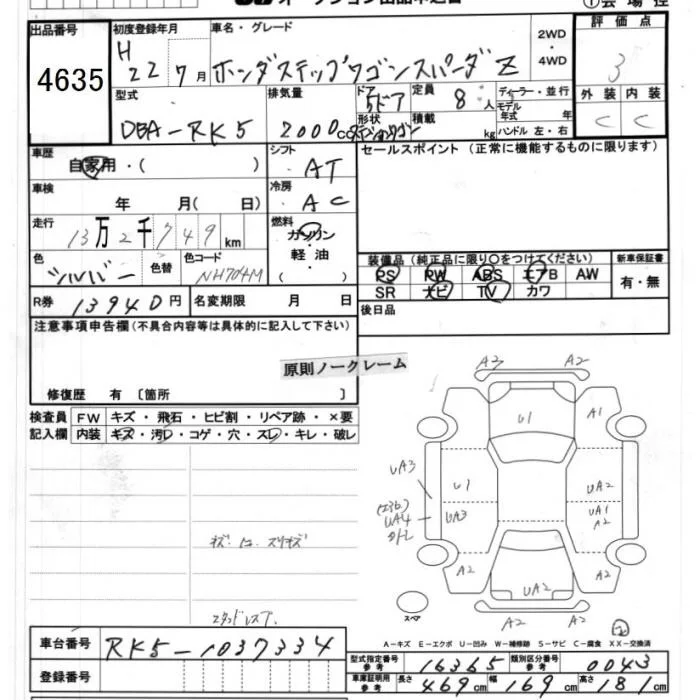 オークション出品申込書
①会場控
出品番号 初度登録年月 車名・グレード 2WD・4WD 評価点
4635 H 22 7月 ホンダステップワゴンスパーダ Z 3
型式 排気量 ドア 5ドア 定員 8人 ディーラー・並行 外装 内装
DBA-RK5 2000cc 形状 積載 kg モデル年式 年 ハンドル 左・右 C C
車歴 シフト セールスポイント (正常に機能するものに限ります)
自家用・( ) AT
車検 冷房
年 月( 日) AC
走行 燃料
13万2千749km ガソリン・軽油( )
色 色替 色コード 装備品 (純正品に限り○をつけてください) 新車保証書
シルバー NH704M PS PW ABS エアB AW 有・無
SR ナビ TV カワ
R券 13940円 名変期限 月 日 後日品
注意事項申告欄(不具合内容等は具体的に記入して下さい)
原則ノークレーム
修復歴 有〔箇所 〕
検査員 FW キズ・飛石・ヒビ割・リペア跡・×要
記入欄 内装 キズ・汚レ・コゲ・穴・スレ・キレ・破レ
A3 A2
U1 A1
UA3 U1 UA2
(236) UA4 UA3 UA1 A2
A2 UA2 A2
A2 A2
スペア
A-キズ E-エクボ U-凹み W-補修跡 S-サビ C-腐食 XX-交換済
車台番号 RK5-1037334
型式指定番号 参考 16365 類別区分番号 参考 0043
登録番号
車庫証明用 参考 長さ 469cm 幅 169cm 高さ 181cm